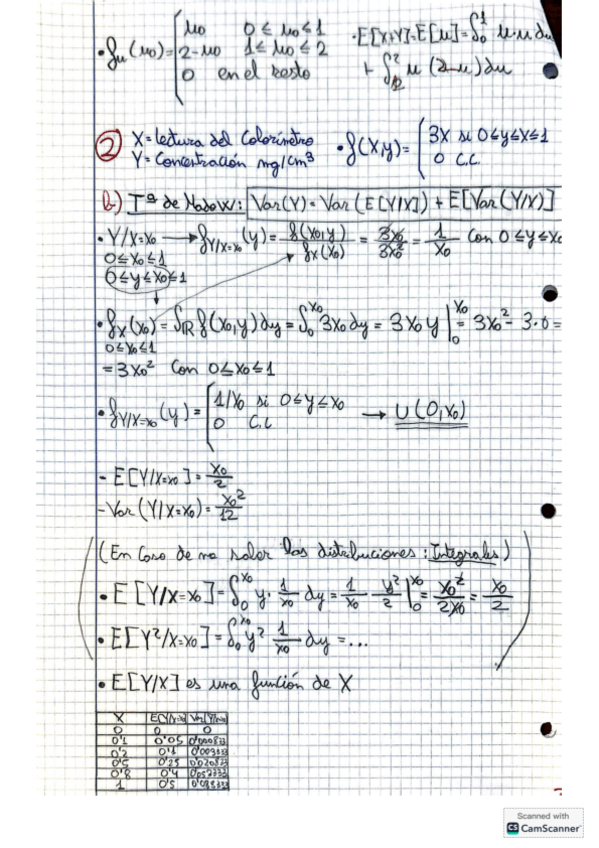 • fu(μ0) = { μ0 0 ≤ μ0 ≤ 1 • E[X+Y] = E[μ] = ∫₀¹ μ·μ dμ
2-μ0 1 ≤ μ0 ≤ 2 + ∫₁² μ (2-μ) dμ
0 en el resto
② X = lectura del Colorímetro • f(X,y) = { 3X si 0≤y≤X≤1
Y = Concentración mg/cm³ 0 C.C.
b) Tª de : Var(Y) = Var(E[Y/X]) + E[Var(Y/X)]
• Y/X=X0 → f Y/X=X0 (y) = f(X0,y) / fX(X0) = 3X0 / 3X0² = 1/X0 con 0≤y≤X0
0≤X0≤1
0≤y≤X0≤1
• fX(X0) = ∫ℝ f(X0,y) dy = ∫₀^X0 3X0 dy = 3X0 y |₀^X0 = 3X0² - 3·0 =
0≤X0≤1
= 3X0² Con 0≤X0≤1
• f Y/X=X0 (y) = { 1/X0 si 0≤y≤X0 → U(0,X0)
0 C.C
- E[Y/X=X0] = X0/2
- Var(Y/X=X0) = X0²/12
(En Caso de no saber las distribuciones : Integrales)
• E[Y/X=X0] = ∫₀^X0 y · 1/X0 dy = 1/X0 y²/2 |₀^X0 = X0²/2X0 = X0/2
• E[Y²/X=X0] = ∫₀^X0 y² 1/X0 dy = ...
• E[Y/X] es una función de X
X E[Y/X=X0] Var[Y/X=X0]
0 0 0
0'1 0'05 0'000833
0'2 0'1 0'003333
0'5 0'25 0'020833
0'8 0'4
1 0'5 0'083333
Scanned with
CS CamScanner